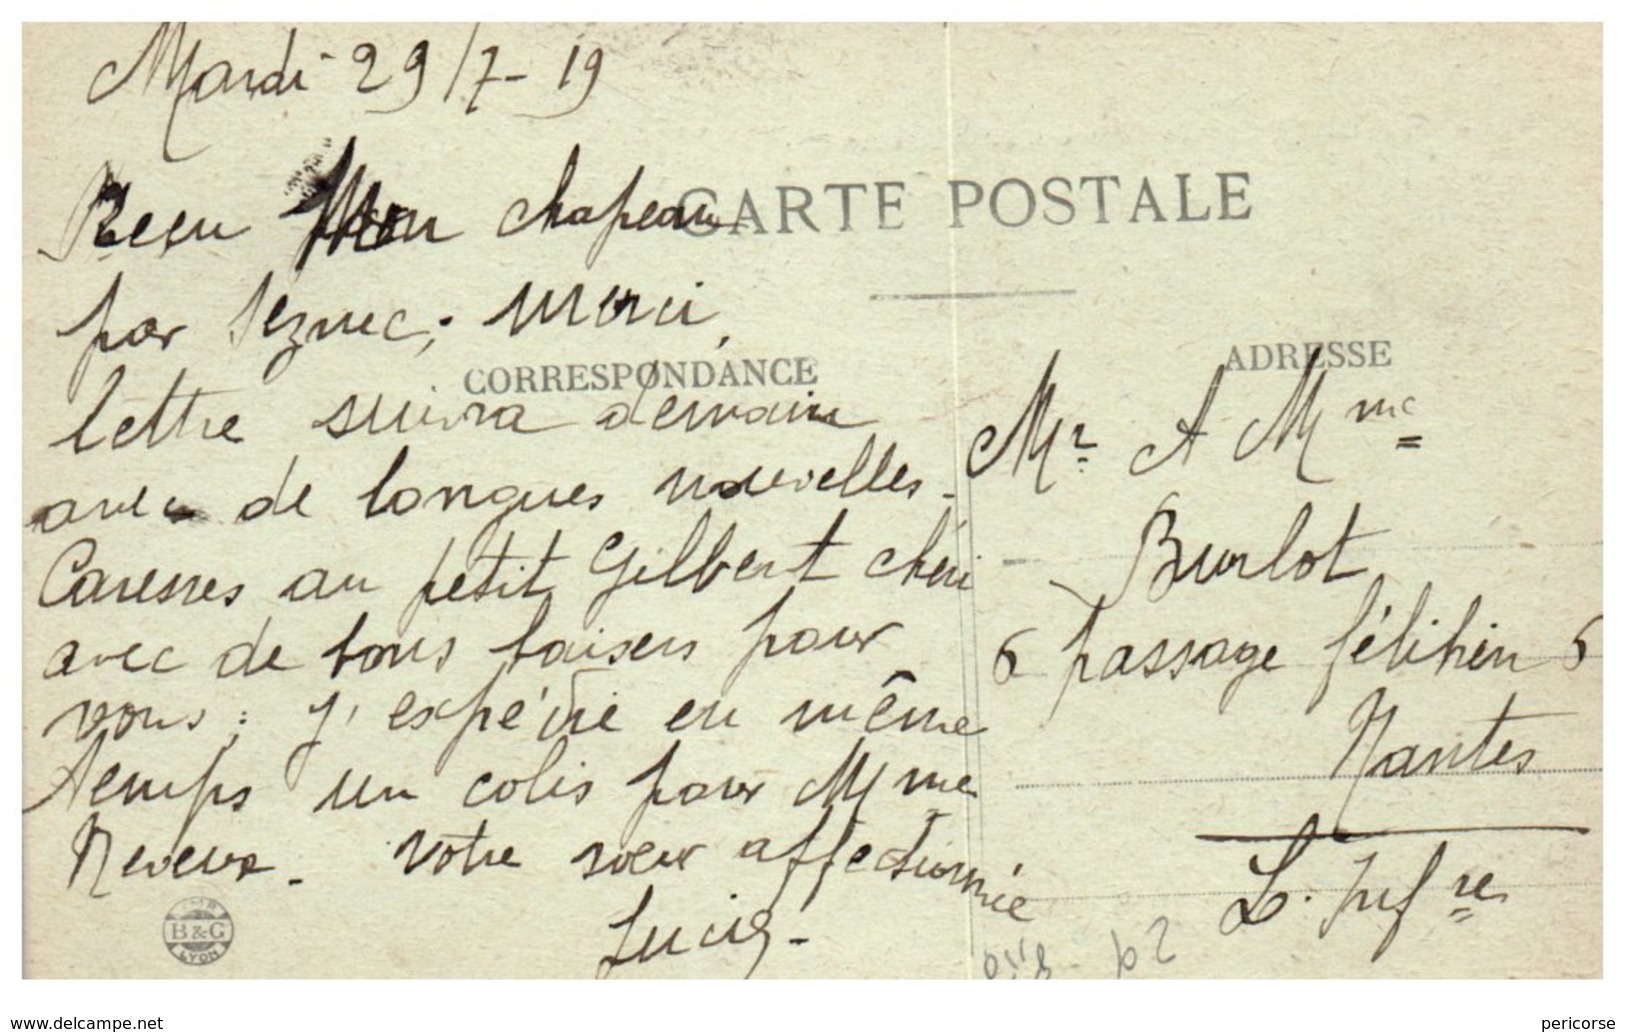 Mardi 29/7-19
CARTE POSTALE
Recu mon chapeau
par Seznec; Merci,
CORRESPONDANCE
lettre suivra demain
avec de longues nouvelles.
Caresses au petit Gilbert chéri
avec de bons baisers pour
vous; j'expédie en même
temps un colis pour Mme
Neveux. Votre sœur affectionnée
Lucie.
ADRESSE
Mr et Mme
Burlot
6 passage félibien 6
Nantes
L. Infre
B&G
LYON
www.delcampe.net
pericorse